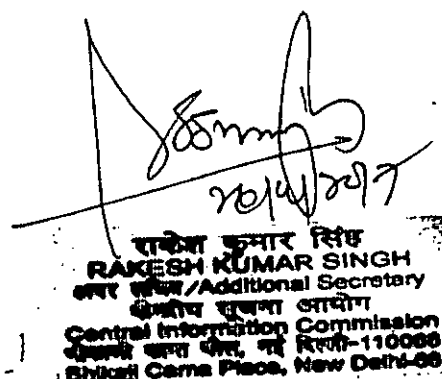 राकेश कुमार सिंह
RAKESH KUMAR SINGH
अपर सचिव/Additional Secretary
केन्द्रीय सूचना आयोग
Central Information Commission
भीकाजी कामा प्लेस, नई दिल्ली-110066
Bhikaji Cama Place, New Delhi-66